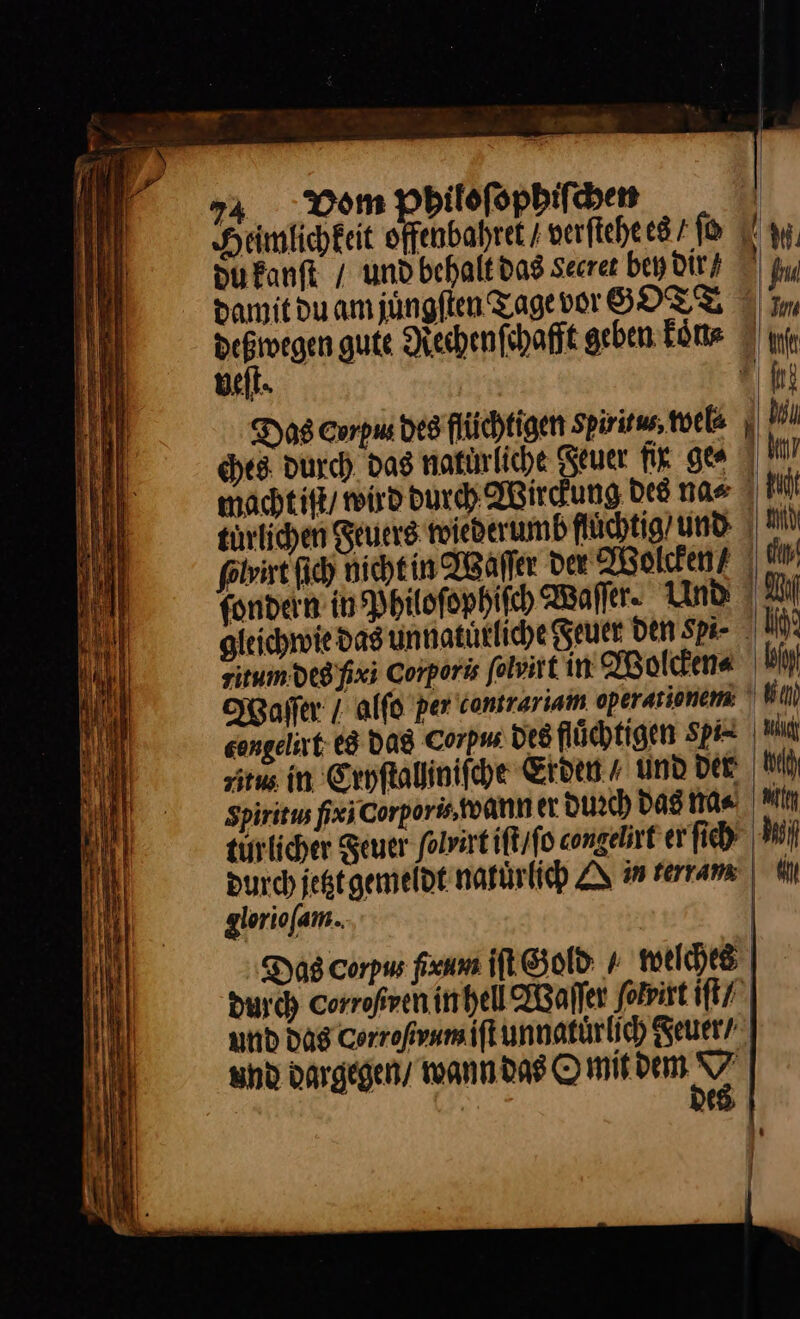 74 Vom Philoſophiſchen
Heimlichkeit offenbahret / verſtehe es / ſo
du kanſt / und behalt das Secret bey dir /
damit du am jüngſten Tage vor GOTT
deßwegen gute Rechenſchafft geben kön⸗
neſt.
Das Corpus des flüchtigen Spiritus, wel⸗
ches durch das natürliche Feuer fix ge⸗
macht iſt / wird durch Wirckung des na⸗
türlichen Feuers wiederumb flüchtig / und
ſolvirt ſich nicht in Waſſer der Wolcken /
ſondern in Philoſophiſch Waſſer. Und
gleichwie das unnatürliche Feuer den Spi-
ritum des fixi Corporis ſolvirt in Wolcken⸗
Waſſer / alſo per contrariam operationem
congelirt es das Corpus des flüchtigen Spi-
ritus in Cryſtalliniſche Erden / und der
Spiritus fixi Corporis, wann er durch das na⸗
türlicher Feuer ſolvirt iſt / ſo congelirt er ſich
durch jetzt gemeldt natürlich 🜂 in terram
glorioſam.
Das Corpus fixum iſt Gold / welches
durch Corroſiven in hell Waſſer ſolvirt iſt /
und das Corroſivum iſt unnatürlich Feuer /
und dargegen / wann das ☉ mit dem 🜄
des